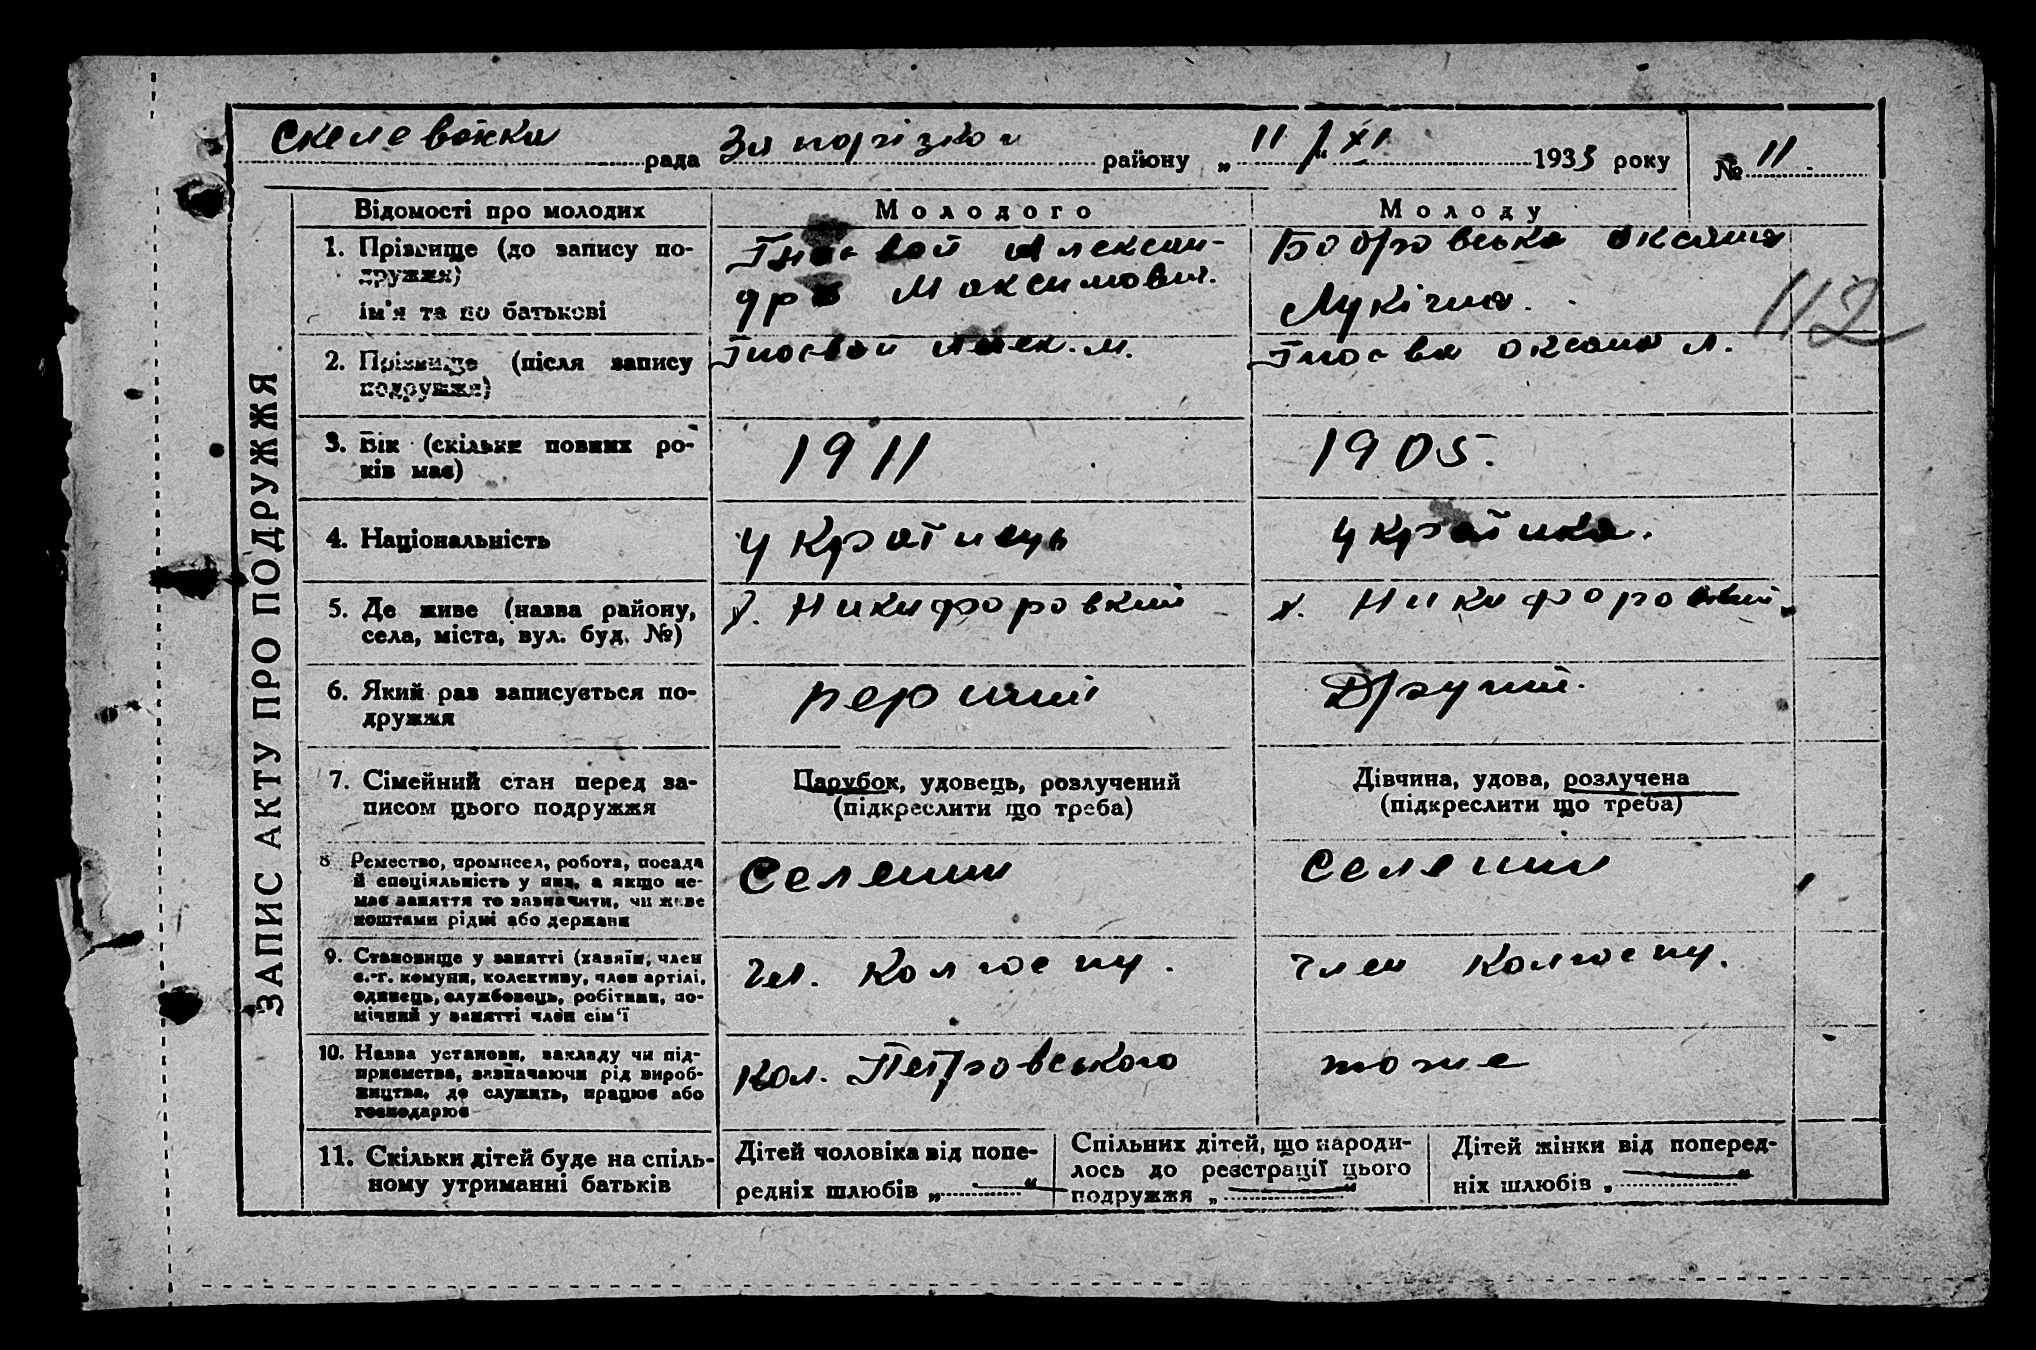 Скелевськи рада Запорізкой району „ 11 / XI 1933 року № 11.
ЗАПИС АКТУ ПРО ПОДРУЖЖЯ
Відомості про молодих Молодого Молоду
1. Прізвище (до запису по- Гносвой Алексан- Бобровська Оксана
дружжя) дра Максимович.
ім'я та по батькові Лукічна.
112
2. Прізвище (після запису Гносвой Алек. М. Гносва Оксана Л.
подружжя)
3. Вік (скільки повних ро- 1911 1905.
ків має)
4. Національність Українець Українка.
5. Де живе (назва району, х. Никифоровкий х. Никифоровкий
села, міста, вул. буд. №)
6. Який раз записується по- перший Другий.
дружжя
7. Сімейний стан перед за- Парубок, удовець, розлучений Дівчина, удова, розлучена
писом цього подружжя (підкреслити що треба) (підкреслити що треба)
8 Ремество, промисел, робота, посада Селенин Селенин
й спеціяльність у них, а якщо не-
має заняття то зазначити, чи живе
коштами рідні або держави
9. Становище у занятті (хазяїн, член Чл. Колгоспу. Член Колгоспу.
с.-г. комуни, колективу, член артілі,
одинець, службовець, робітник, по-
мічний у занятті член сім'ї
10. Назва установи, закладу чи під- Кол. Петровського тоже
приємства, зазначаючи рід вироб-
ництва, де служить, працює або
господарює
11. Скільки дітей буде на спіль- Дітей чоловіка від попе- Спільних дітей, що народи- Дітей жінки від поперед-
ному утриманні батьків редніх шлюбів „ — “ лось до реєстрації цього ніх шлюбів „ — “
подружжя „ — “